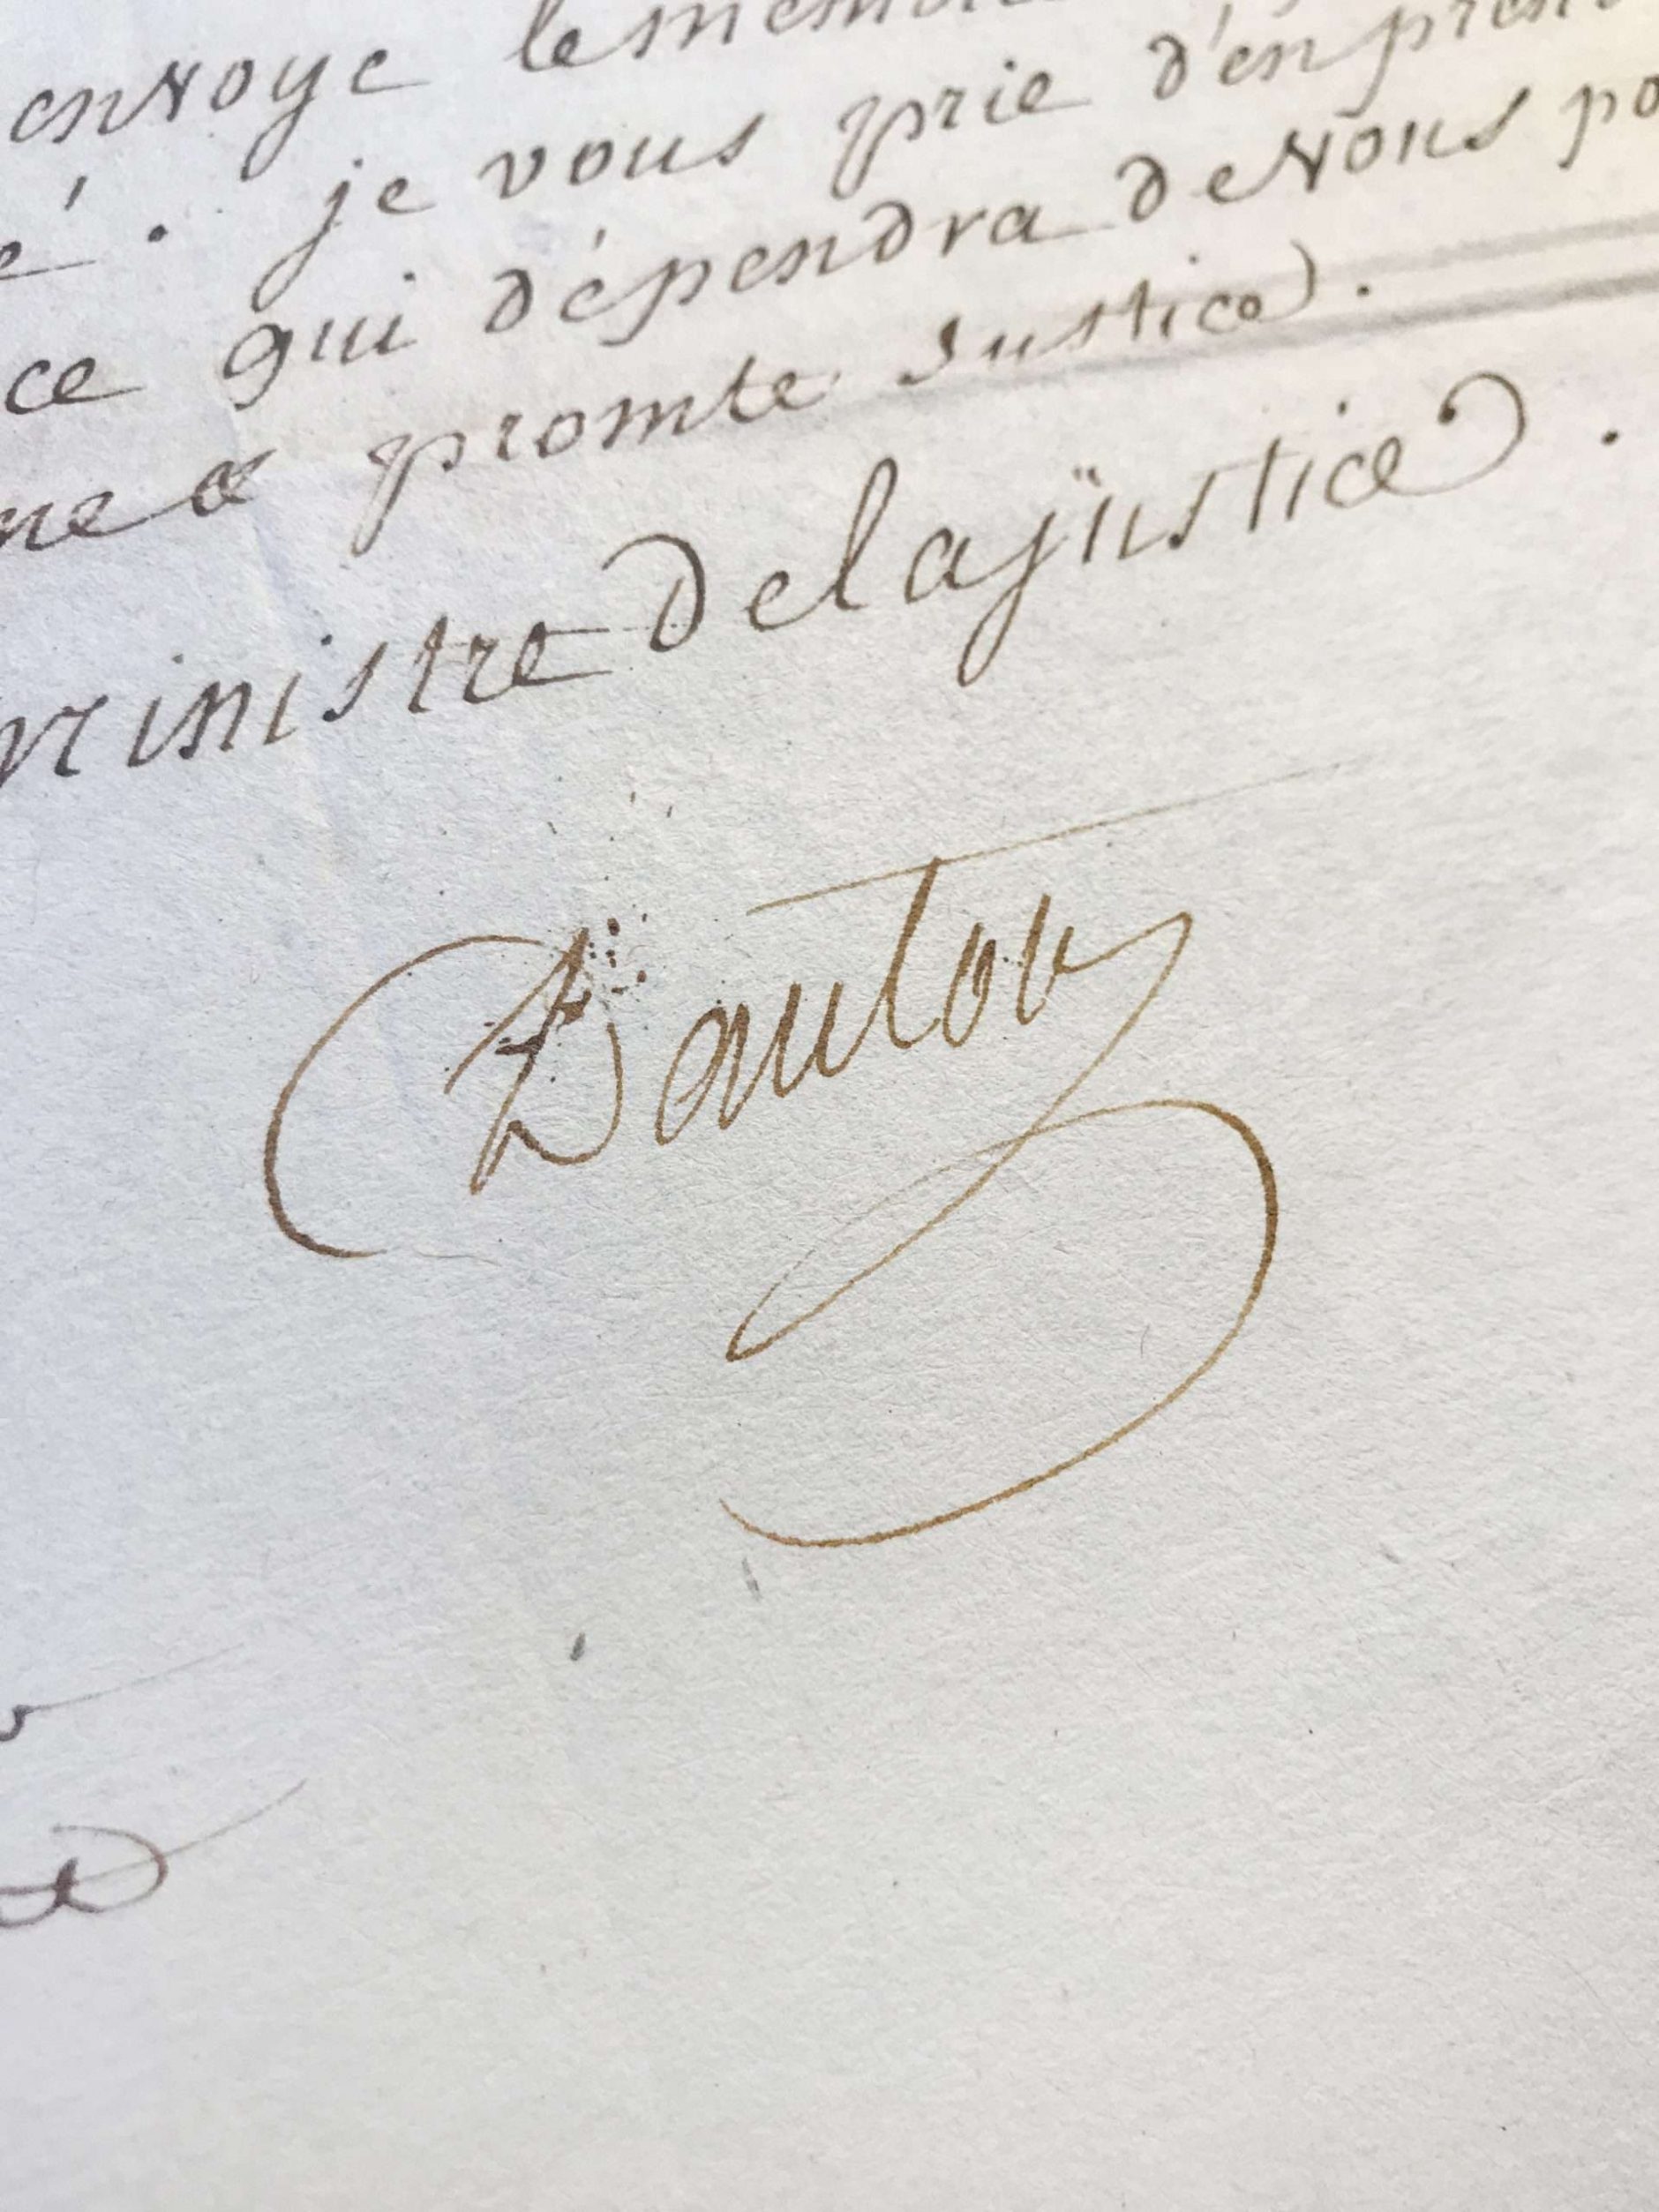 envoye le memoi
é. je vous prie d'en pren
ce qui dépendra de vous po
ne & promte Justice.
ministre de la justice.
Danton